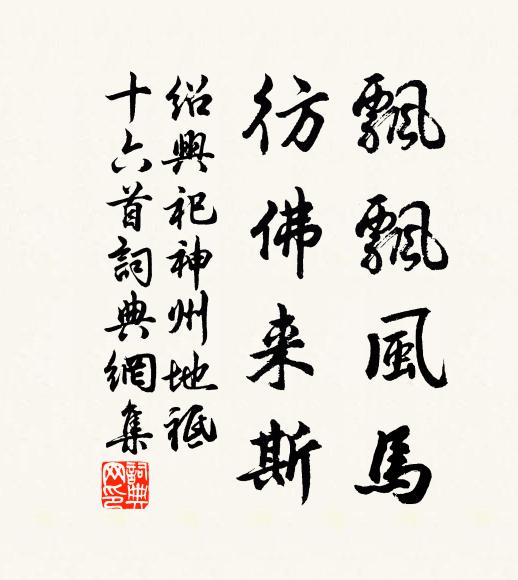 飄飄風馬
彷佛来斯
紹興祀神州地祗
十六首詞典網集
詞典
网印